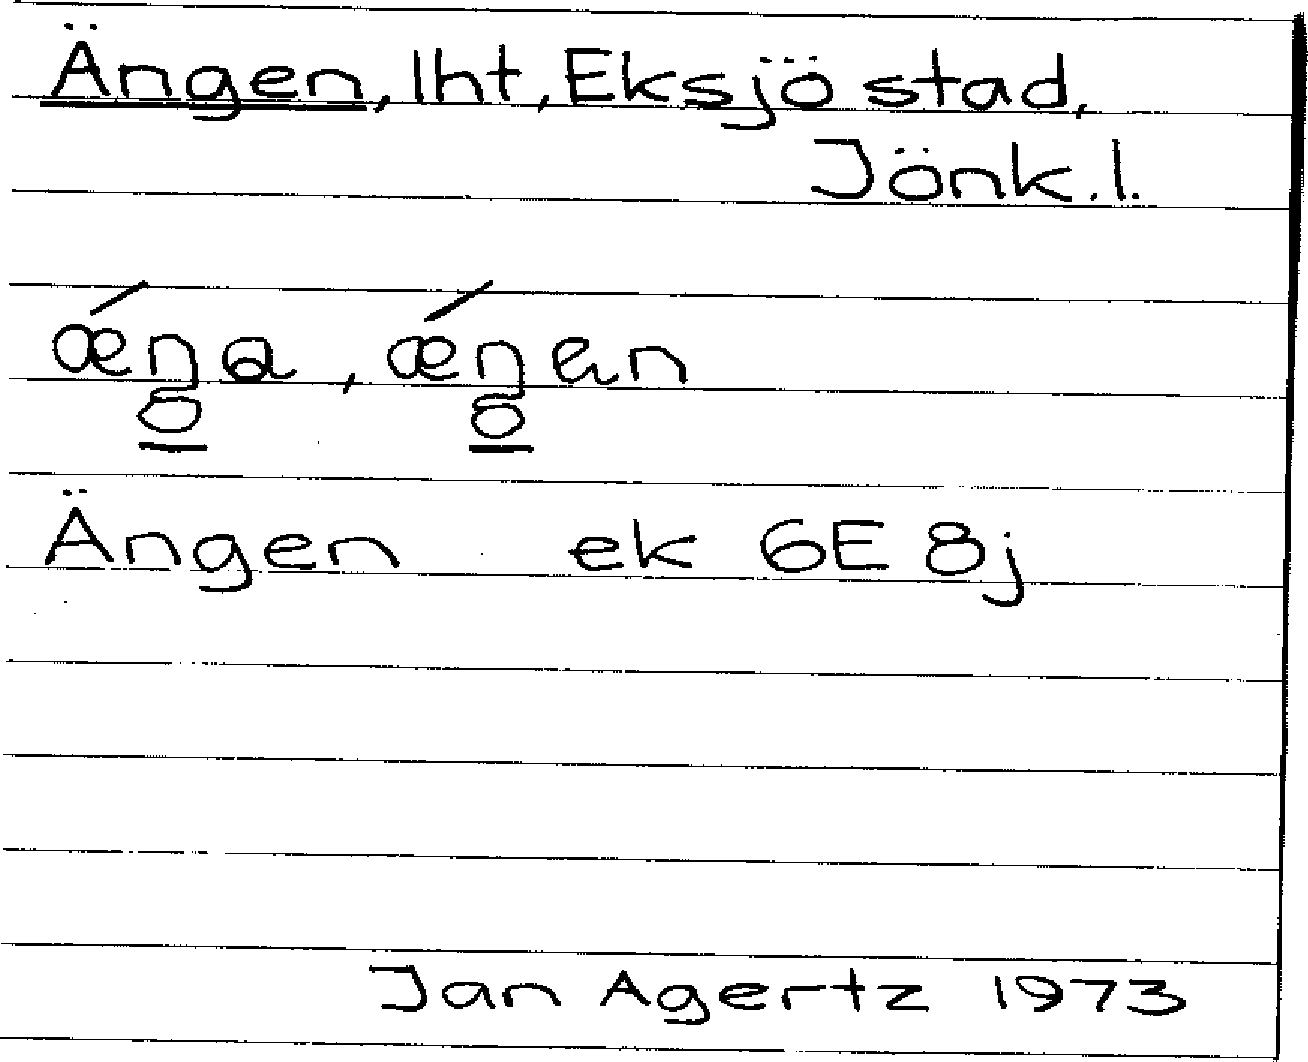 Ängen, lht, Eksjö stad,
Jönk.l.
ǽŋa, ǽŋən
Ängen ek 6E 8j
Jan Agertz 1973